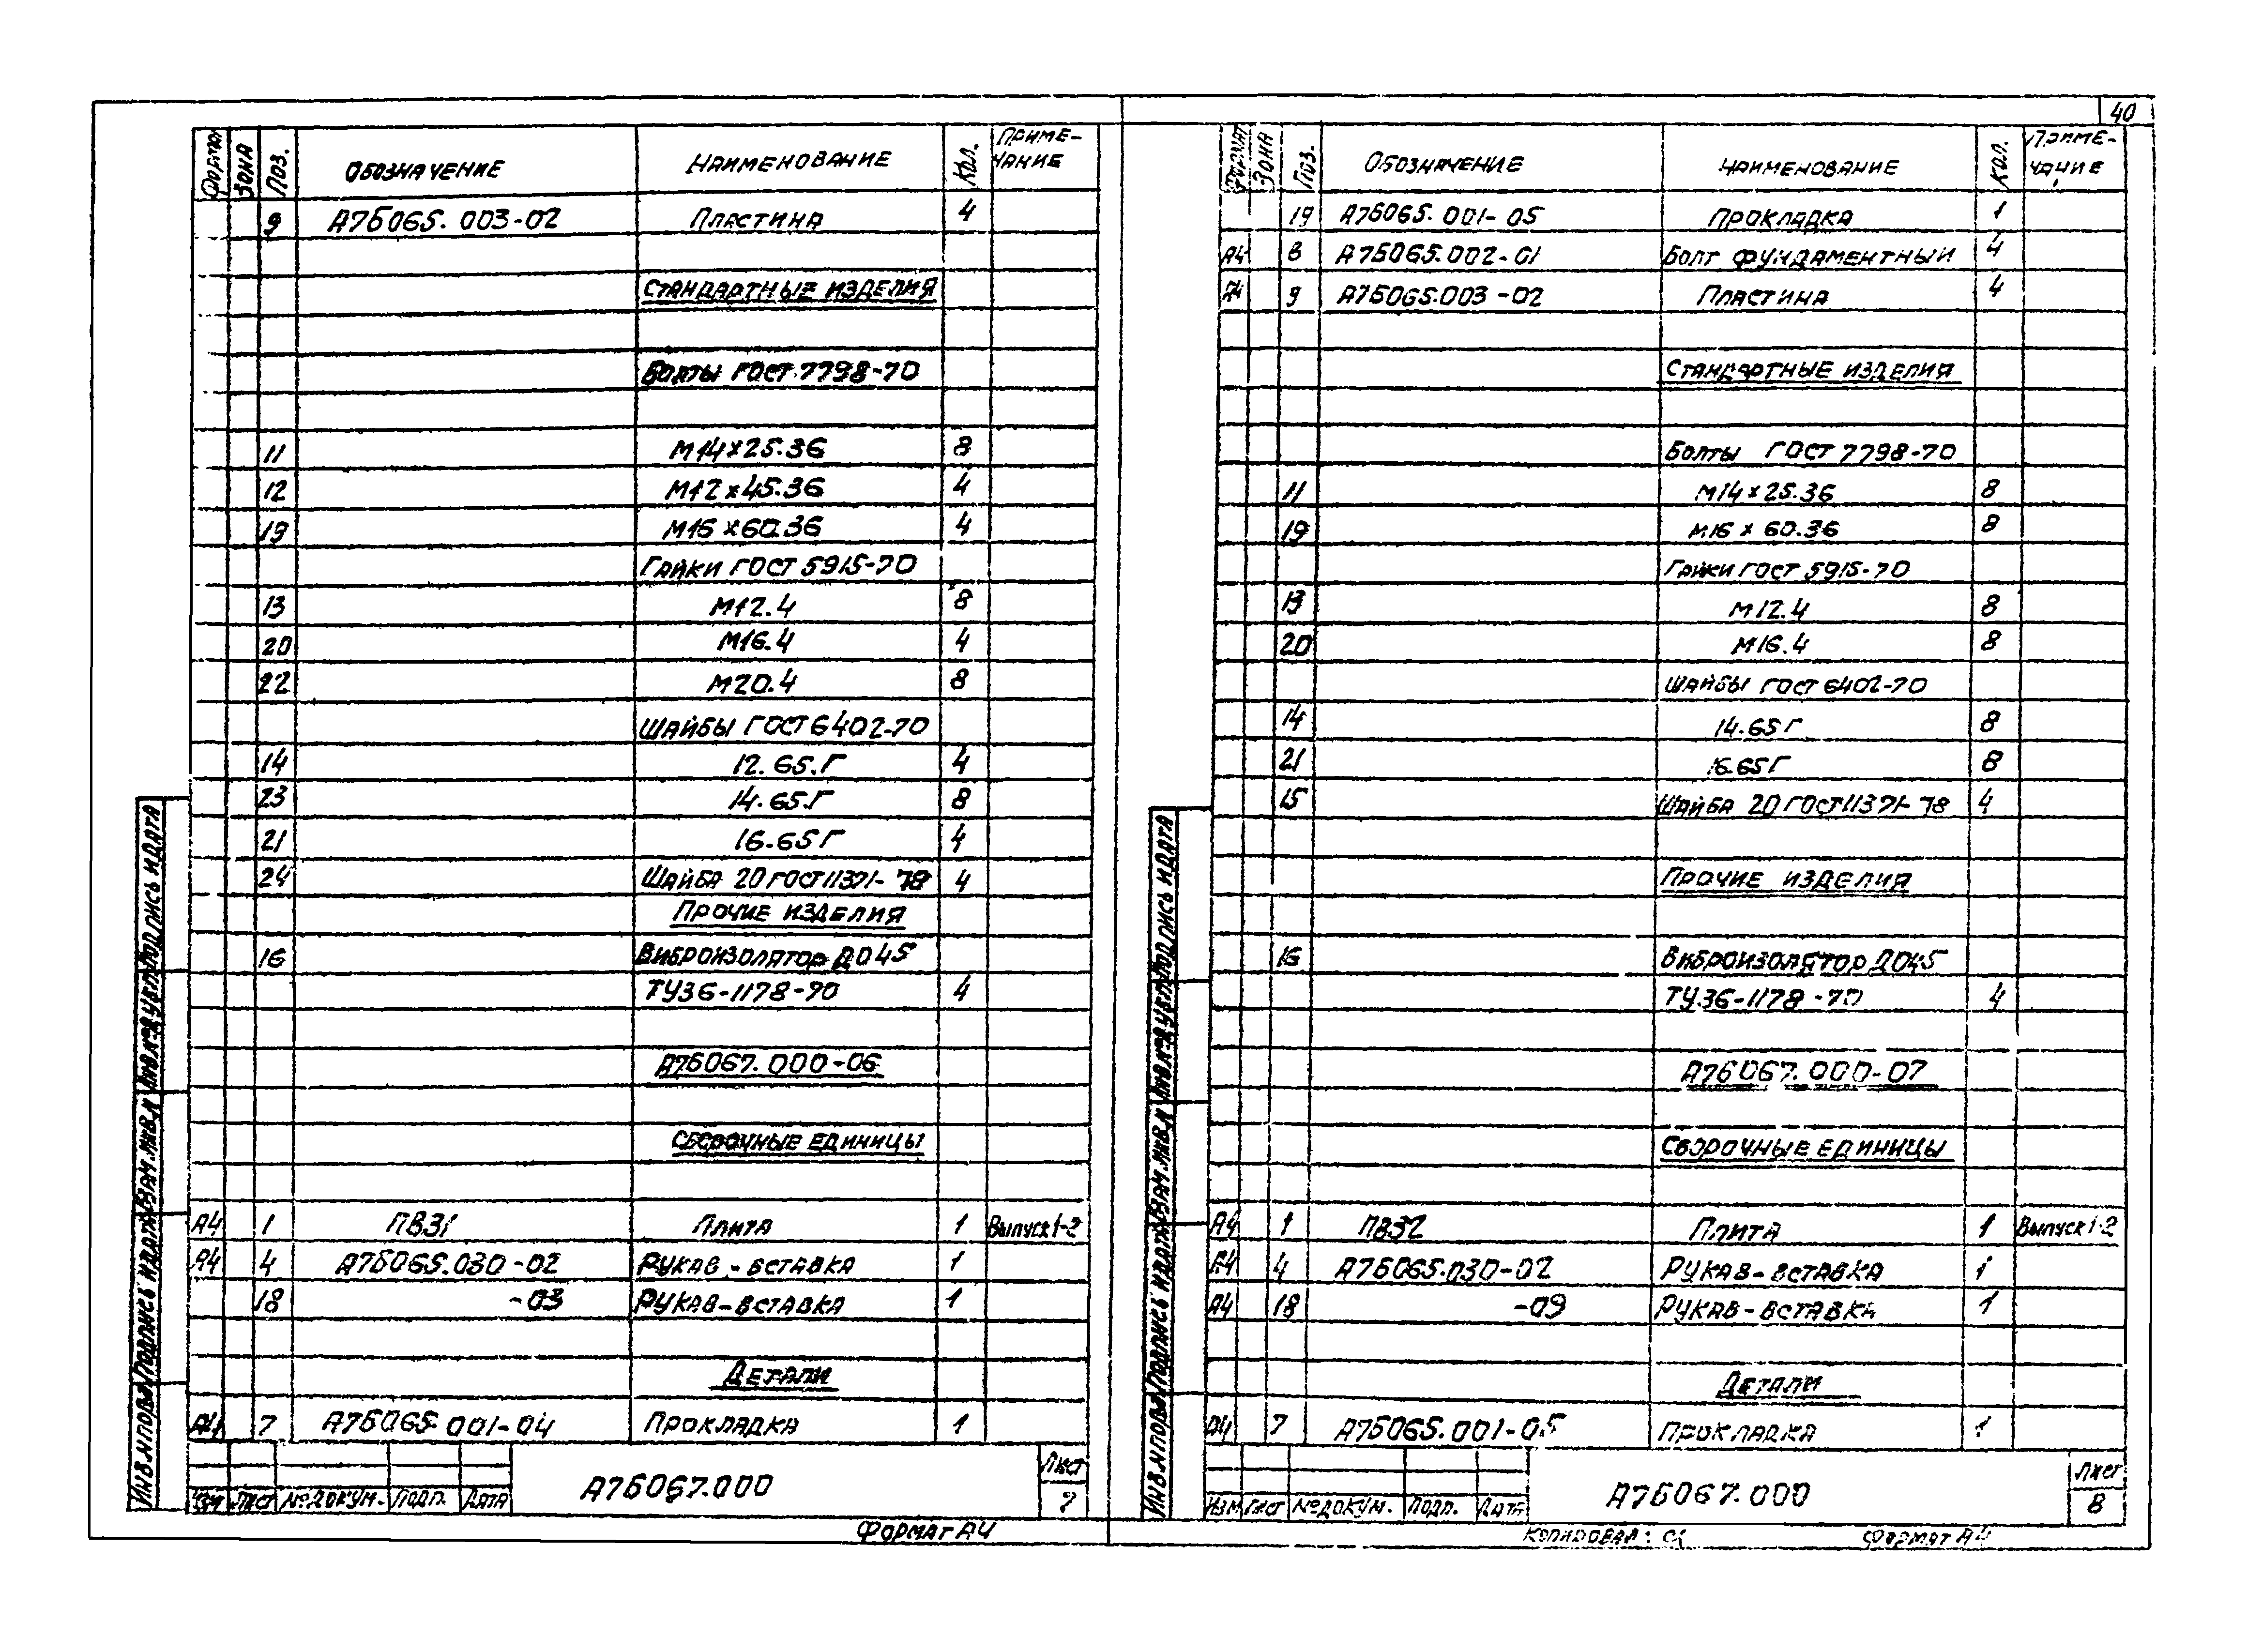 40
Формат Зона Поз. Обозначение Наименование Кол. Примечание
9 А7Б065.003-02 Пластина 4
Стандартные изделия
Болты ГОСТ 7798-70
11 М14х25.36 8
12 М12х45.36 4
19 М16х60.36 4
Гайки ГОСТ 5915-70
13 М12.4 8
20 М16.4 4
22 М20.4 8
Шайбы ГОСТ 6402-70
14 12.65.Г 4
23 14.65.Г 8
21 16.65Г 4
24 Шайба 20 ГОСТ 11371-78 4
Прочие изделия
16 Виброизолятор Д045
ТУ36-1178-70 4
А7Б067.000-06
Сборочные единицы
А4 1 ПВ31 Плита 1 Выпуск 1-2
А4 4 А7Б065.030-02 Рукав-вставка 1
18 -03 Рукав-вставка 1
Детали
А4 7 А7Б065.001-04 Прокладка 1
Изм Лист №докум. Подп. Дата
А7Б067.000
Лист
7
Формат А4
Инв.№подл Подпись и дата Взам.инв.№ Инв.№дубл Подпись и дата
Формат Зона Поз. Обозначение Наименование Кол. Примечание
19 А7Б065.001-05 Прокладка 1
А4 8 А7Б065.002-01 Болт фундаментный 4
А4 9 А7Б065.003-02 Пластина 4
Стандартные изделия
Болты ГОСТ 7798-70
11 М14х25.36 8
19 М16х60.36 8
Гайки ГОСТ 5915-70
13 М12.4 8
20 М16.4 8
Шайбы ГОСТ 6402-70
14 14.65Г 8
21 16.65Г 8
15 Шайба 20 ГОСТ 11371-78 4
Прочие изделия
16 Виброизолятор Д045
ТУ36-1178-70 4
А7Б067.000-07
Сборочные единицы
А4 1 ПВ32 Плита 1 Выпуск 1-2
А4 4 А7Б065.030-02 Рукав-вставка 1
А4 18 -09 Рукав-вставка 1
Детали
А4 7 А7Б065.001-05 Прокладка 1
Изм Лист №докум. Подп. Дата
А7Б067.000
Лист
8
Копировал:
Формат А4
Инв.№подл Подпись и дата Взам.инв.№ Инв.№дубл Подпись и дата